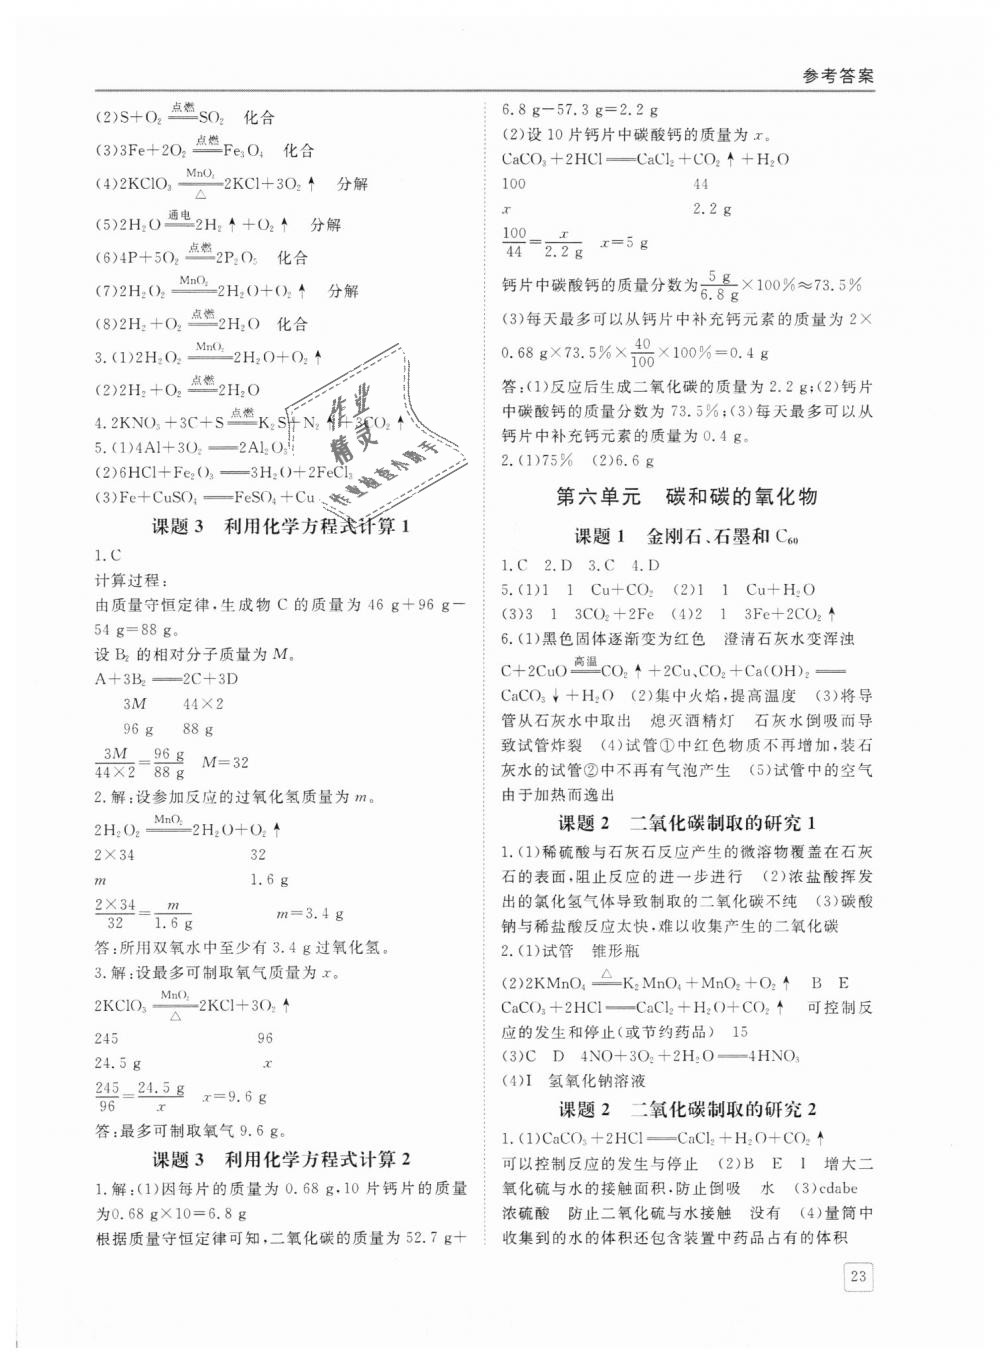 参考答案
(2)S+O₂ ══点燃══ SO₂ 化合
(3)3Fe+2O₂ ══点燃══ Fe₃O₄ 化合
(4)2KClO₃ ══MnO₂/△══ 2KCl+3O₂↑ 分解
(5)2H₂O ══通电══ 2H₂↑+O₂↑ 分解
(6)4P+5O₂ ══点燃══ 2P₂O₅ 化合
(7)2H₂O₂ ══MnO₂══ 2H₂O+O₂↑ 分解
(8)2H₂+O₂ ══点燃══ 2H₂O 化合
3.(1)2H₂O₂ ══MnO₂══ 2H₂O+O₂↑
(2)2H₂+O₂ ══点燃══ 2H₂O
4.2KNO₃+3C+S ══点燃══ K₂S+N₂↑+3CO₂↑
5.(1)4Al+3O₂ ══ 2Al₂O₃
(2)6HCl+Fe₂O₃ ══ 3H₂O+2FeCl₃
(3)Fe+CuSO₄ ══ FeSO₄+Cu
课题3 利用化学方程式计算1
1.C
计算过程:
由质量守恒定律,生成物 C 的质量为 46 g+96 g-
54 g=88 g。
设 B₂ 的相对分子质量为 M。
A+3B₂ ══ 2C+3D
3M 44×2
96 g 88 g
3M/44×2=96 g/88 g M=32
2.解:设参加反应的过氧化氢质量为 m。
2H₂O₂ ══MnO₂══ 2H₂O+O₂↑
2×34 32
m 1.6 g
2×34/32=m/1.6 g m=3.4 g
答:所用双氧水中至少有 3.4 g 过氧化氢。
3.解:设最多可制取氧气质量为 x。
2KClO₃ ══MnO₂/△══ 2KCl+3O₂↑
245 96
24.5 g x
245/96=24.5 g/x x=9.6 g
答:最多可制取氧气 9.6 g。
课题3 利用化学方程式计算2
1.解:(1)因每片的质量为 0.68 g,10 片钙片的质量
为0.68 g×10=6.8 g
根据质量守恒定律可知,二氧化碳的质量为 52.7 g+
6.8 g-57.3 g=2.2 g
(2)设 10 片钙片中碳酸钙的质量为 x。
CaCO₃+2HCl ══ CaCl₂+CO₂↑+H₂O
100 44
x 2.2 g
100/44=x/2.2 g x=5 g
钙片中碳酸钙的质量分数为5 g/6.8 g×100%≈73.5%
(3)每天最多可以从钙片中补充钙元素的质量为 2×
0.68 g×73.5%×40/100×100%=0.4 g
答:(1)反应后生成二氧化碳的质量为 2.2 g;(2)钙片
中碳酸钙的质量分数为 73.5%;(3)每天最多可以从
钙片中补充钙元素的质量为 0.4 g。
2.(1)75% (2)6.6 g
第六单元 碳和碳的氧化物
课题1 金刚石、石墨和C₆₀
1.C 2.D 3.C 4.D
5.(1)1 1 Cu+CO₂ (2)1 1 Cu+H₂O
(3)3 1 3CO₂+2Fe (4)2 1 3Fe+2CO₂↑
6.(1)黑色固体逐渐变为红色 澄清石灰水变浑浊
C+2CuO ══高温══ CO₂↑+2Cu、CO₂+Ca(OH)₂ ══
CaCO₃↓+H₂O (2)集中火焰,提高温度 (3)将导
管从石灰水中取出 熄灭酒精灯 石灰水倒吸而导
致试管炸裂 (4)试管①中红色物质不再增加,装石
灰水的试管②中不再有气泡产生 (5)试管中的空气
由于加热而逸出
课题2 二氧化碳制取的研究1
1.(1)稀硫酸与石灰石反应产生的微溶物覆盖在石灰
石的表面,阻止反应的进一步进行 (2)浓盐酸挥发
出的氯化氢气体导致制取的二氧化碳不纯 (3)碳酸
钠与稀盐酸反应太快,难以收集产生的二氧化碳
2.(1)试管 锥形瓶
(2)2KMnO₄ ══△══ K₂MnO₄+MnO₂+O₂↑ B E
CaCO₃+2HCl ══ CaCl₂+H₂O+CO₂↑ 可控制反
应的发生和停止(或节约药品) 15
(3)C D 4NO+3O₂+2H₂O ══ 4HNO₃
(4)I 氢氧化钠溶液
课题2 二氧化碳制取的研究2
1.(1)CaCO₃+2HCl ══ CaCl₂+H₂O+CO₂↑
可以控制反应的发生与停止 (2)B E I 增大二
氧化硫与水的接触面积,防止倒吸 水 (3)cdabe
浓硫酸 防止二氧化硫与水接触 没有 (4)量筒中
收集到的水的体积还包含装置中药品占有的体积
23
作业
精灵
作业检查小助手